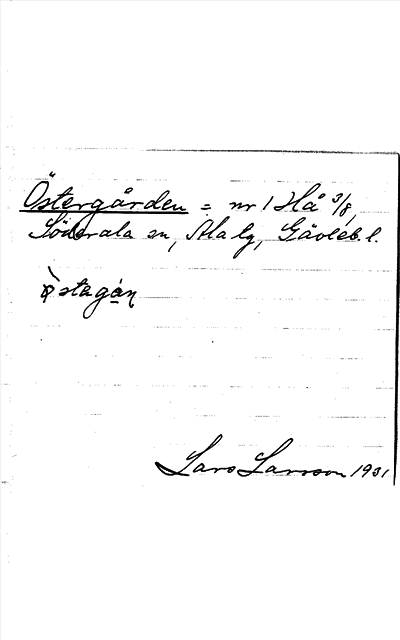 Östergården = nr 1 Hå 3/8,
Söderala sn, Ala lg, Gävleb. l.
östagán
Lars Larsson 1931